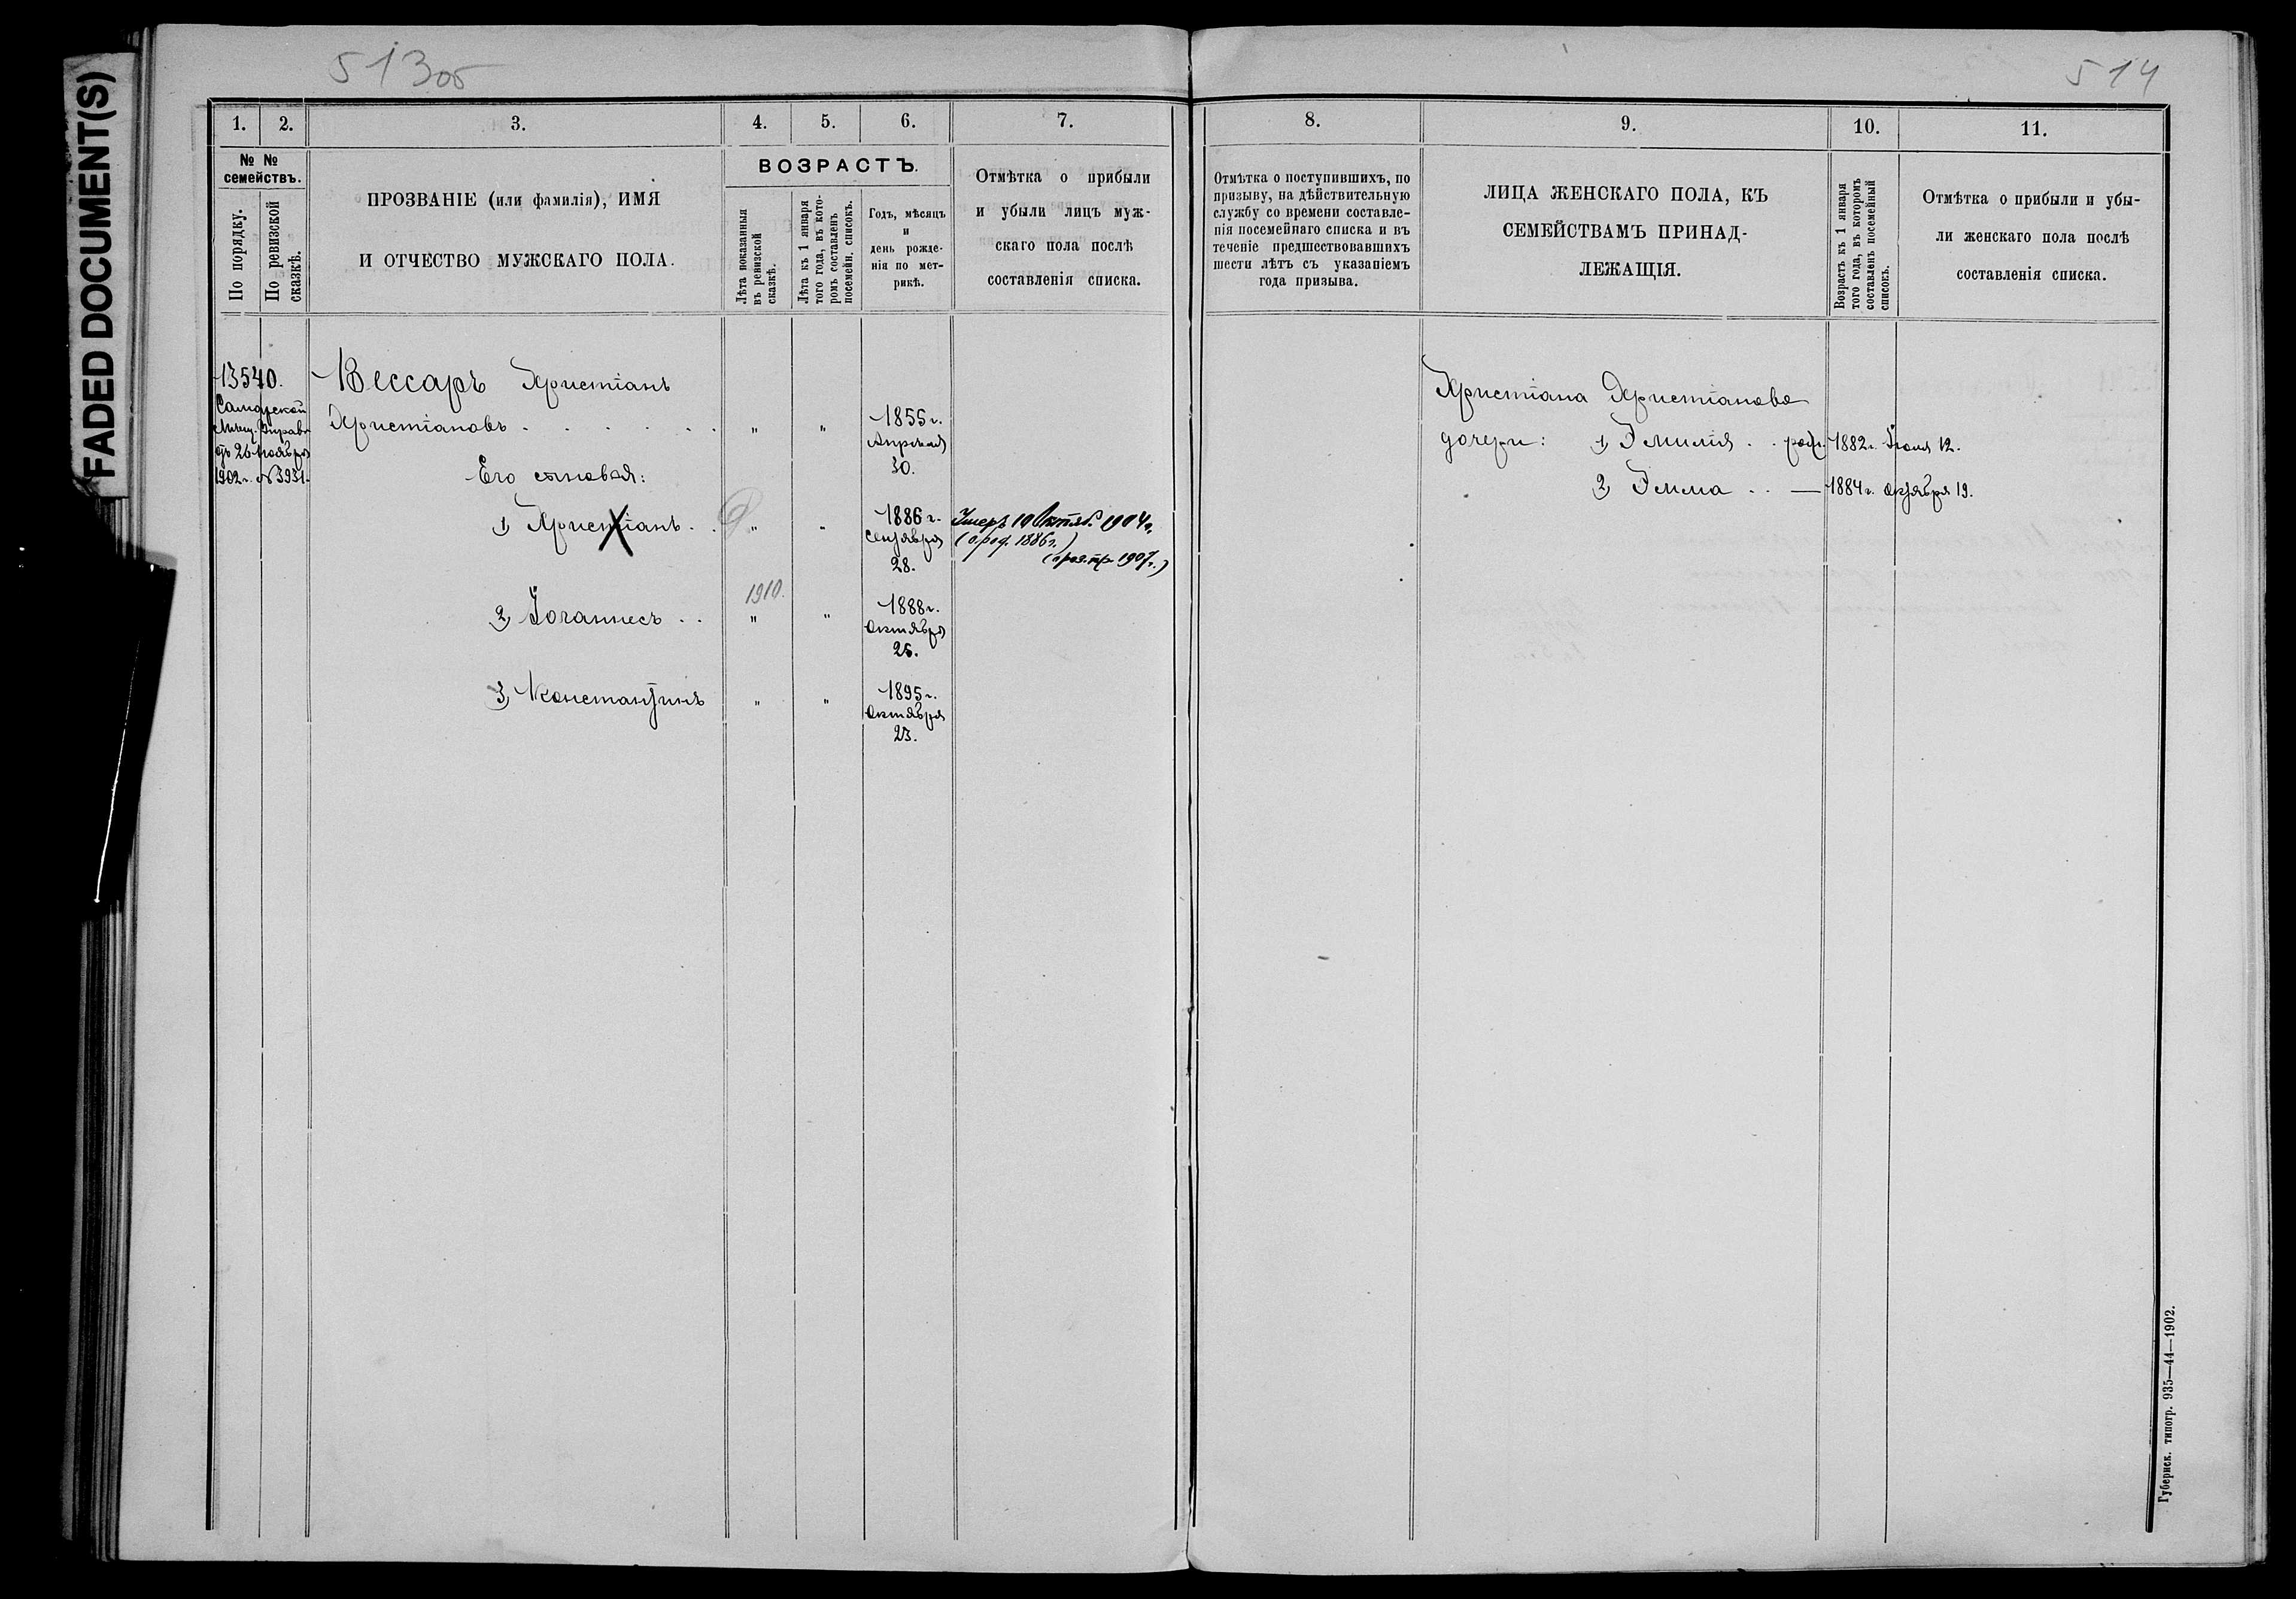 FADED DOCUMENT(S)
513об
514
1.
2.
3.
4.
5.
6.
7.
8.
9.
10.
11.
№ №
семействъ.
По порядку.
По ревизской
сказкѣ.
ПРОЗВАНІЕ (или фамилія), ИМЯ
И ОТЧЕСТВО МУЖСКАГО ПОЛА.
ВОЗРАСТЪ.
Лѣта показанныя
въ ревизской
сказкѣ.
Лѣта къ 1 января
того года, въ кото-
ромъ составленъ
посемейн. списокъ.
Годъ, мѣсяцъ
и
день рожде-
нія по мет-
рикѣ.
Отмѣтка о прибыли
и убыли лицъ муж-
скаго пола послѣ
составленія списка.
Отмѣтка о поступившихъ, по
призыву, на дѣйствительную
службу со времени составле-
нія посемейнаго списка и въ
теченіе предшествовавшихъ
шести лѣтъ съ указаніемъ
года призыва.
ЛИЦА ЖЕНСКАГО ПОЛА, КЪ
СЕМЕЙСТВАМЪ ПРИНАД-
ЛЕЖАЩІЯ.
Возрастъ къ 1 января
того года, въ которомъ
составленъ посемейный
списокъ.
Отмѣтка о прибыли и убы-
ли женскаго пола послѣ
составленія списка.
13540.
Самарской
Мѣщ. Управы
отъ 26 Ноября
1902 г. № 3931.
Вессаръ Христіанъ
Христіановъ . . . . . . " "
1855 г.
Апрѣля
30.
Его сыновья:
1) Христіанъ . . " "
1886 г.
Сентября
28.
Умеръ 10 Октяб. 1904 г.
(о.род. 1886 г.)
1907 г.)
1910.
2) Іоганнесъ . . " "
1888 г.
Октября
26.
3) Константинъ " "
1895 г.
Октября
23.
Христіана Христіанова
дочери: 1) Эмилія . . род. 1882 г. Іюля 12.
2) Эмма . . — 1884 г. Октября 19.
Губернск. типогр. 935—44—1902.